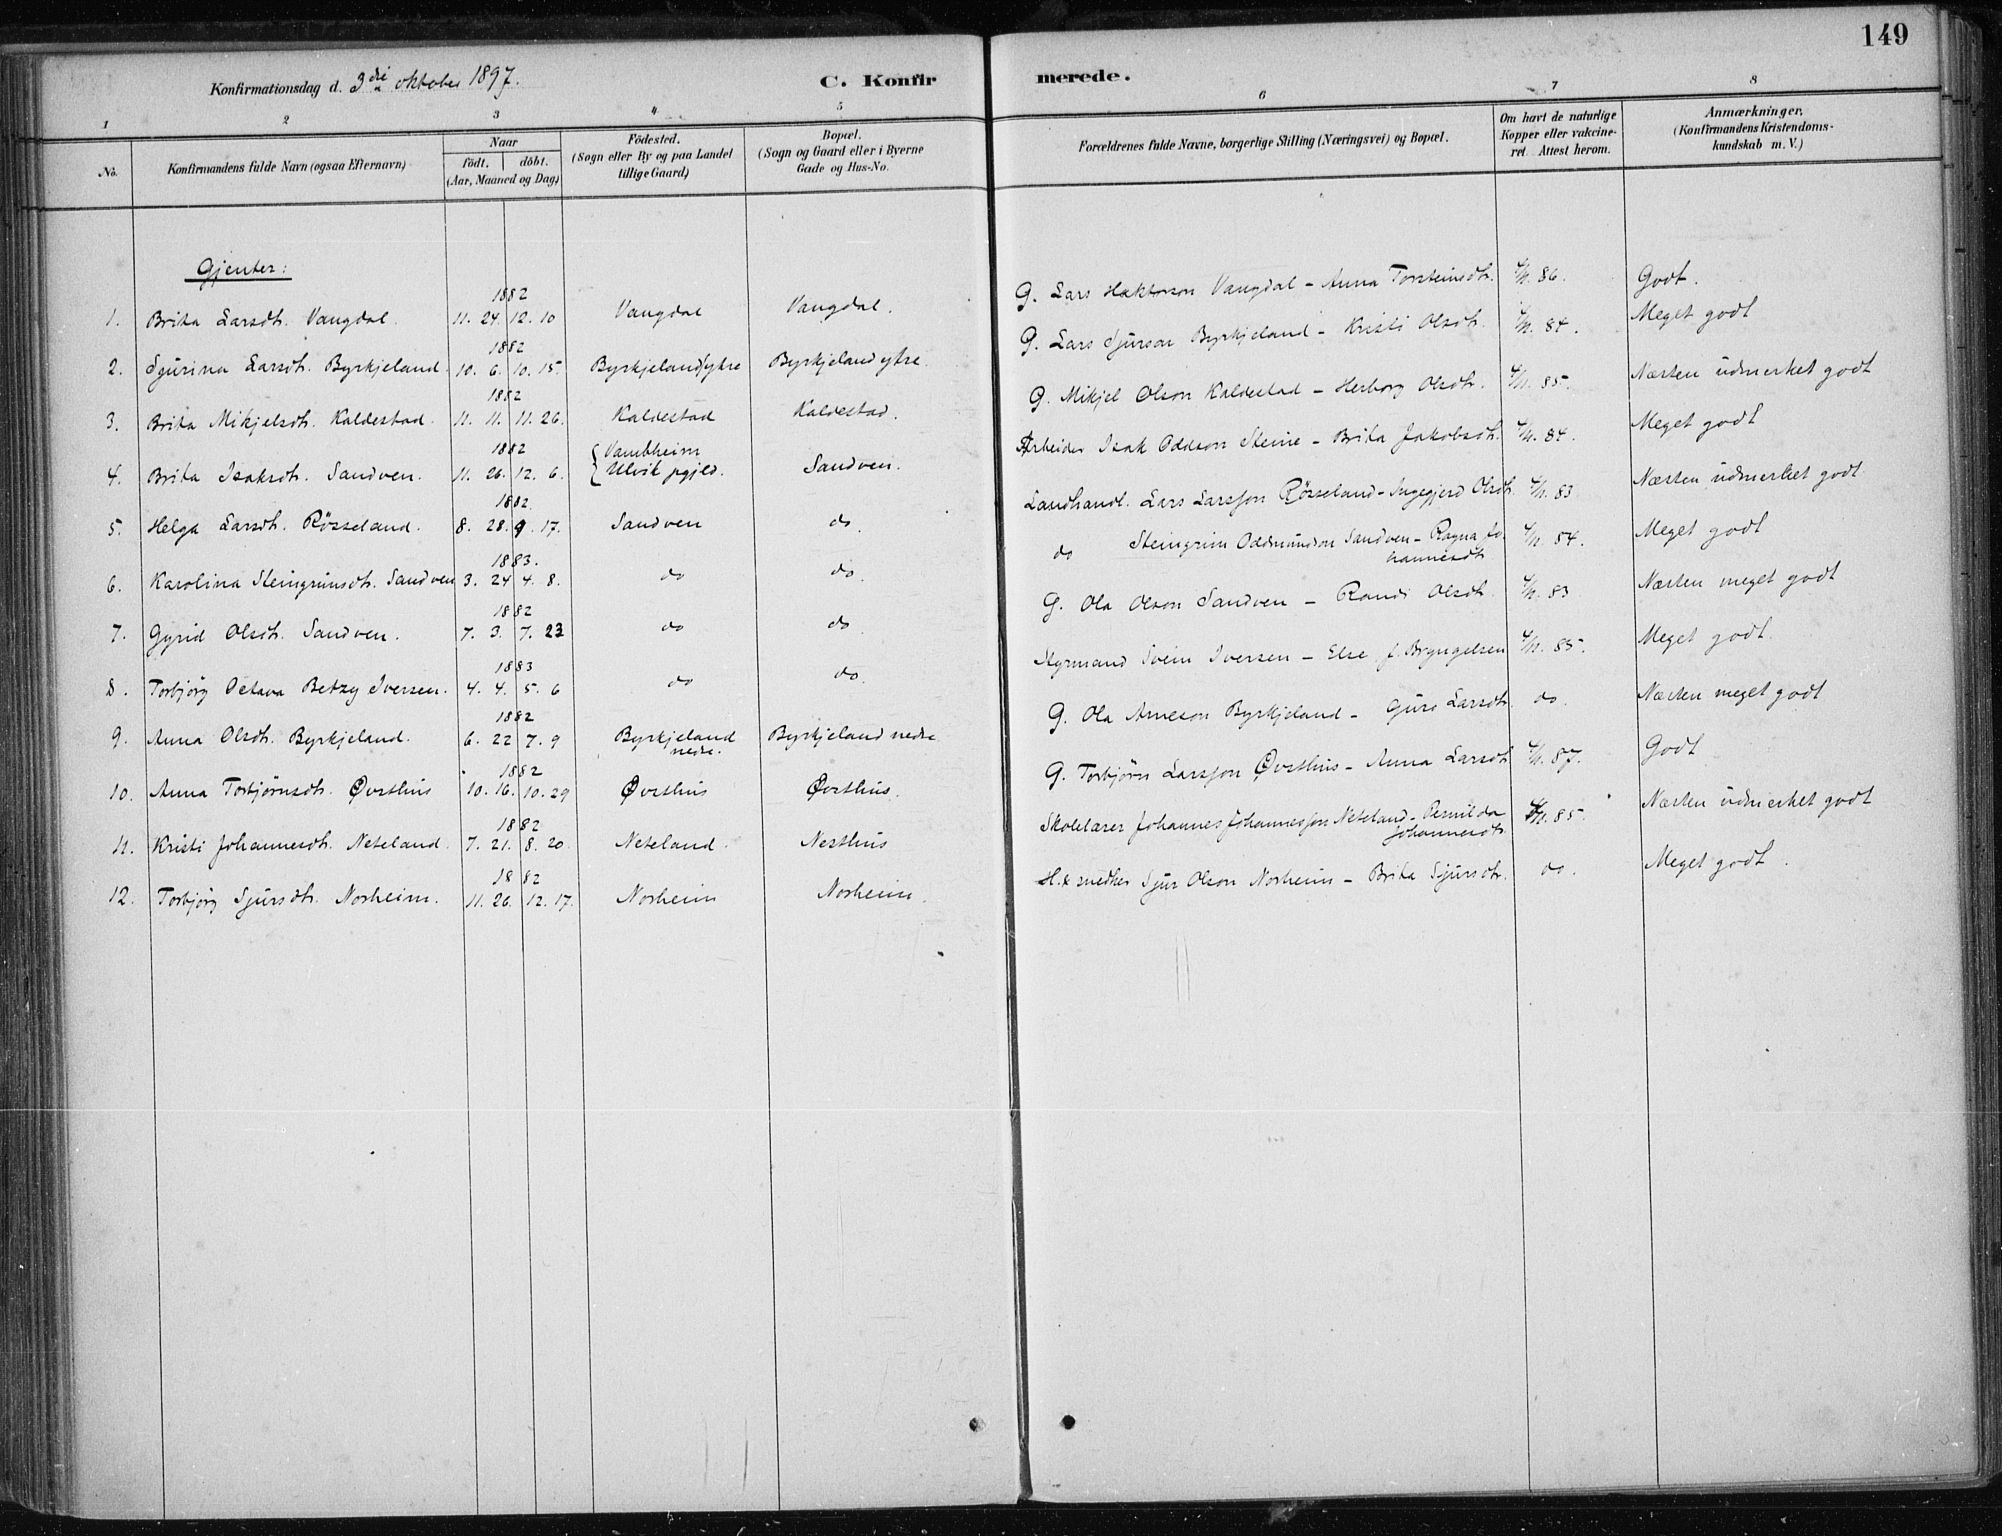 149
Konfirmationsdag d. 3die oktober 1897.
C. Konfirmerede.
1 2 3 4 5 6 7 8
No.
Konfirmandens fulde Navn (ogsaa Efternavn)
Naar
födt. döbt.
(Aar, Maaned og Dag)
Födested.
(Sogn eller By og paa Landet
tillige Gaard)
Bopæl.
(Sogn og Gaard eller i Byerne
Gade og Hus-No.
Forældrenes fulde Navne, borgerlige Stilling (Næringsvei) og Bopæl.
Om havt de naturlige
Kopper eller vakcine-
ret. Attest herom.
Anmærkninger.
(Konfirmandens Kristendoms-
kundskab m. V.)
Gjenter:
1882
1. Brita Larsdtr. Vangdal. 11. 24. 12. 10 Vangdal Vangdal. G. Lars Haktorson Vangdal - Anna Torsteinsdtr. 86. Godt.
1882
2. Sjurina Larsdtr. Byrkjeland. 10. 6. 10. 15. Byrkjeland ytre Byrkjeland ytre. G. Lars Sjurson Byrkjeland - Kristi Olsdtr. 84. Meget godt
1882
3. Brita Mikjelsdtr. Kaldestad. 11. 11. 11. 26. Kaldestad Kaldestad. G. Mikjel Olson Kaldestad - Herborg Olsdtr. 85. Næsten udmerket godt
1882
4. Brita Isaksdtr. Sandven. 11. 26. 12. 6. { Vambheim
Ulvik pgjld. Sandven. Arbeider Isak Oddson Steine - Brita Jakobsdtr. 84. Meget godt
1882.
5. Helga Larsdtr. Røsseland. 8. 28. 9. 17. Sandven do Landhandl. Lars Larsson Røsseland - Ingegjerd Olsdtr. 83 Næsten udmerket godt
1883.
6. Karolina Steingrimsdtr. Sandven 3. 24 4. 8. do do. do Steingrim Oddmundson Sandven - Ragna Jo-
hannesdtr 84. Meget godt
1882
7. Gyrid Olsdtr. Sandven. 7. 3. 7. 23 do do. G. Ola Olson Sandven - Randi Olsdtr. 83 Næsten meget godt
1883
8. Torbjørg Octava Betzy Iversen. 4. 4. 5. 6 do do. Styrmand Svein Iversen - Else f. Bryngelsen 85. Meget godt.
1882
9. Anna Olsdtr. Byrkjeland. 6. 22 7. 9 Byrkjeland
nedre. Byrkjeland nedre G. Ola Arneson Byrkjeland - Guro Larsdtr. do. Næsten meget godt
1882
10. Anna Torbjørnsdtr. Øvsthus 10. 16. 10. 29 Øvsthus Øvsthus. G. Torbjørn Larsson Øvsthus - Anna Larsdtr 87. Godt
1882
11. Kristi Johannesdtr. Neteland. 7. 21. 8. 20. Neteland. Nesthus Skolelærer Johannes Johannesson Neteland - Pernilda
Johannesdtr. 85. Næsten udmerket godt
1882
12. Torbjørg Sjursdtr. Norheim. 11. 26. 12. 17. Norheim Norheim. H. & smedker Sjur Olson Norheim - Brita Sjursdtr. do. Meget godt.